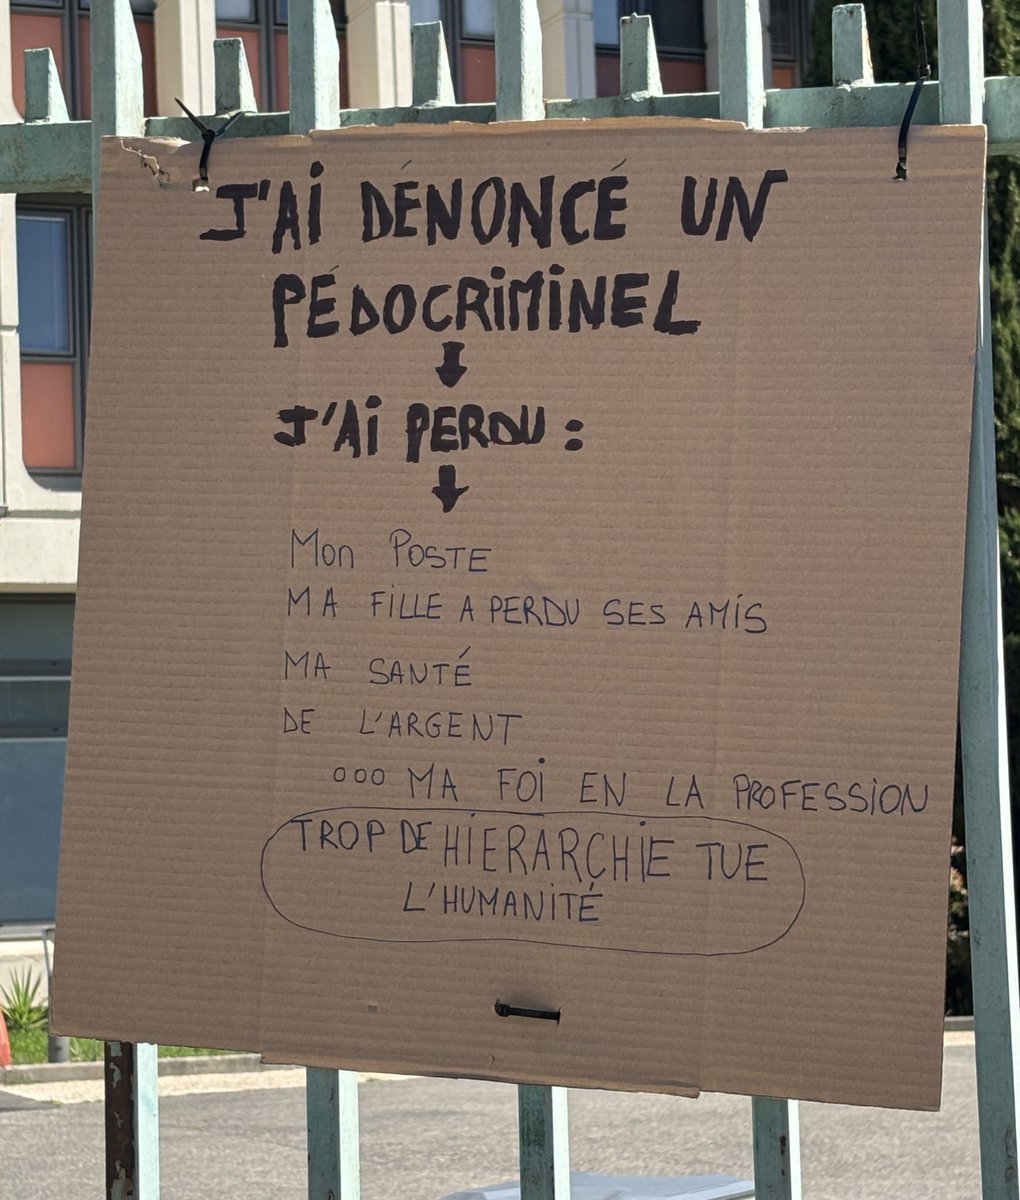 J'AI DÉNONCÉ UN
PÉDOCRIMINEL
J'AI PERDU :
MON POSTE
MA FILLE A PERDU SES AMIS
MA SANTÉ
DE L'ARGENT
ooo MA FOI EN LA PROFESSION
TROP DE HIERARCHIE TUE
L'HUMANITÉ